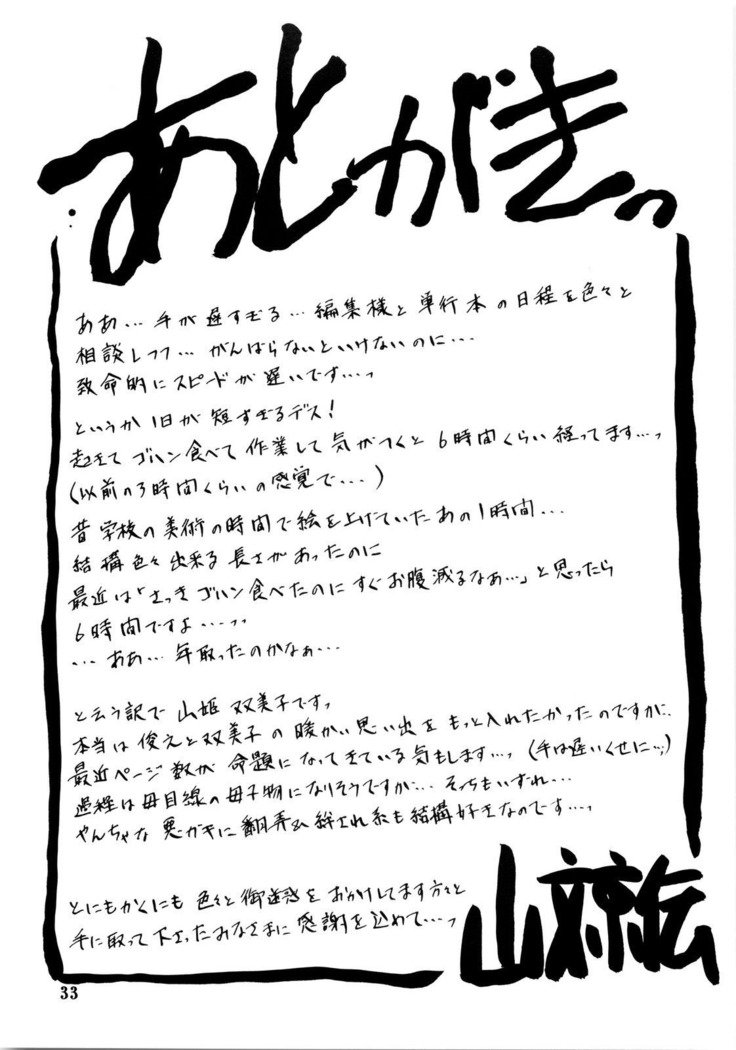 あとがきっ
ああ…手が遅すぎる…編集様と単行本の日程を色々と
相談しつつ…がんばらないといけないのに…
致命的にスピードが遅いです…っ
というか1日が短すぎるデス！
起きてゴハン食べて作業して気がつくと6時間くらい経ってます…っ
（以前の3時間くらいの感覚で…）
昔学校の美術の時間で絵を上げていたあの1時間…
結構色々出来る長さがあったのに
最近は「さっきゴハン食べたのにすぐお腹減るなぁ…」と思ったら
6時間ですよ…っっ
…ああ…年取ったのかなぁ…
と云う訳で山姫双美子ですっ
本当は俊元と双美子の暖かい思い出をもっと入れたかったのですが、
最近ページ数が命題になってきている気もします…っ（手は遅いくせに…）
過程は母目線の母子物になりそうですが…そっちもいずれ…
やんちゃな悪ガキに翻弄され系も結構好きなのです…っ
とにもかくにも色々と御迷惑をおかけしてます方々と
手に取って下さったみなさまに感謝を込めて…っ
山文京伝
33